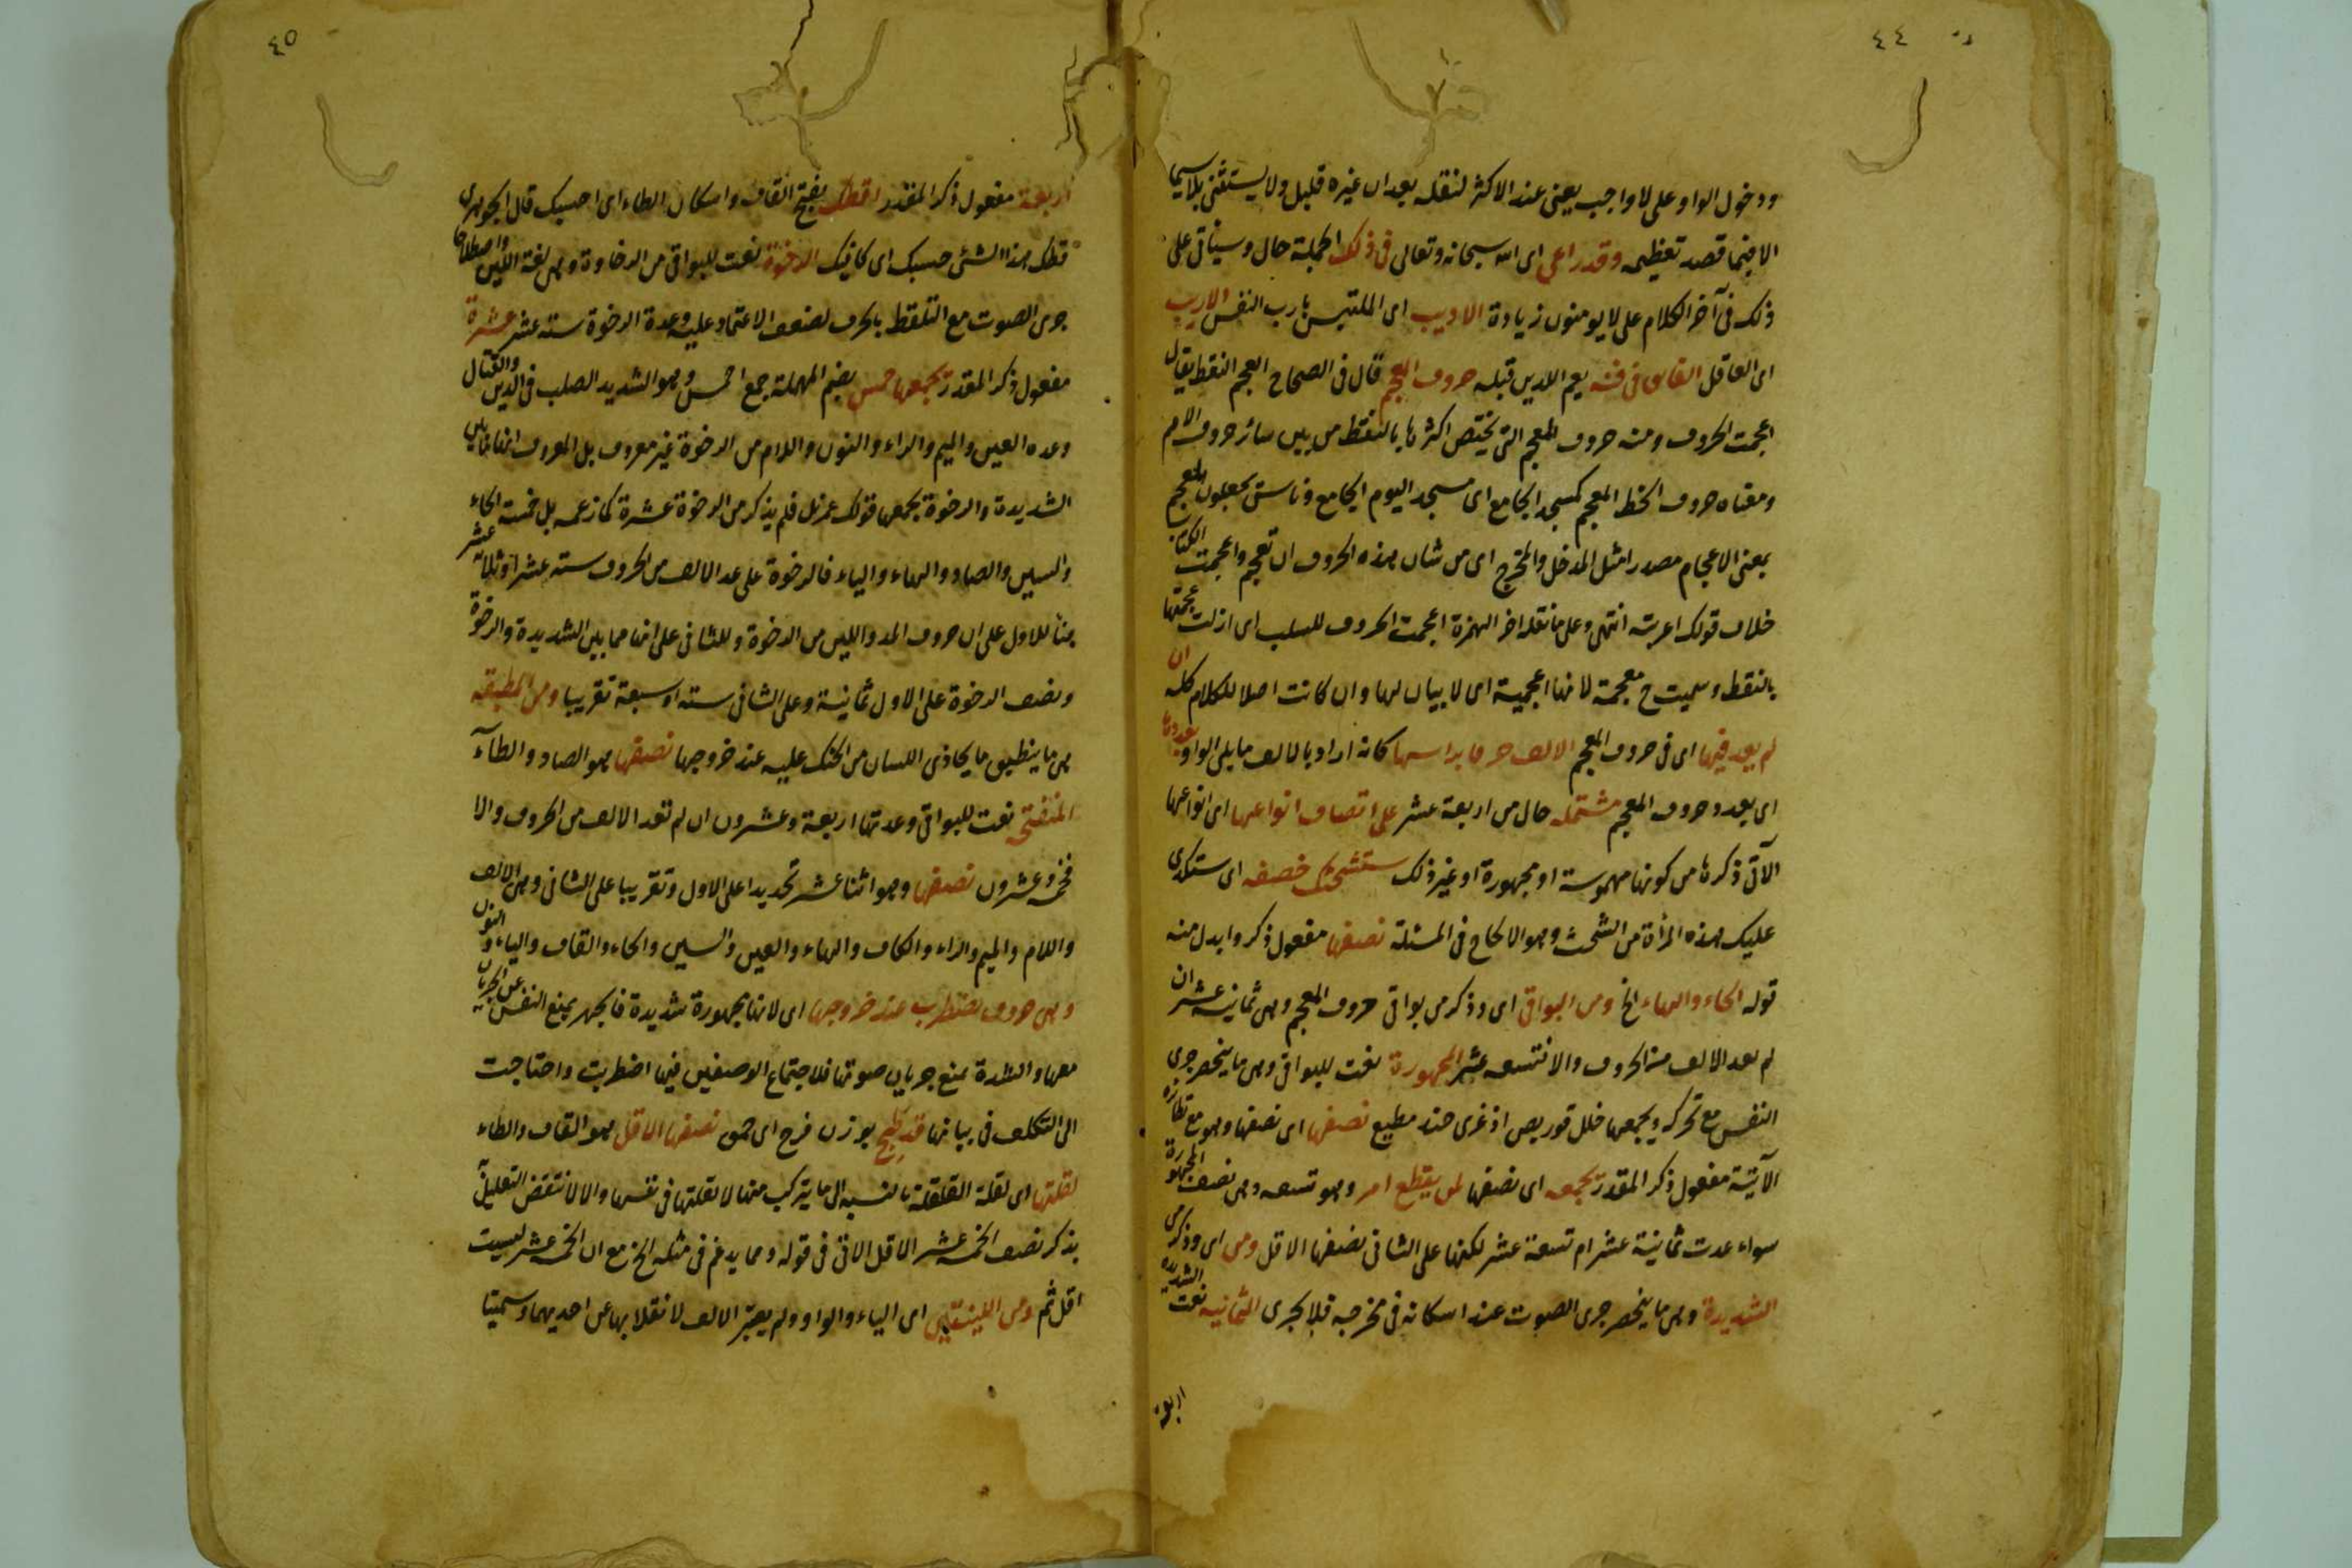 ٤٤
ودخول الواو على لا واجب يعنى عند الاكثر لنقله بعد ان غيره قليل ولا يستثنى بلاسيما
الا فيما قصد تعظيمه وقد راعى اى الله سبحانه وتعالى فى ذلك الجملة حال وسيأتى على
ذلك فى آخر الكلام على لا يومنون زيادة الاديب اى الملتبس بارب النفس الاريب
اى العاقل الفائق فى فنه يعم اللذين قبله حروف المعجم قال فى الصحاح العجم النقط يقال
اعجمت الحروف ومنه حروف المعجم التى يختص اكثرها بالنقط من بين سائر حروف الامم
ومعناه حروف الخط المعجم كمسجد الجامع اى مسجد اليوم الجامع وناس يجعلون المعجم
بمعنى الاعجام مصدرا مثل المدخل والمخرج اى من شان هذه الحروف ان تعجم واعجمت الكتاب
خلاف قولك اعربته انتهى وعلى ما نقله اخر الهمزة اعجمت الحروف للسلب اى ازلت عجمتها
بالنقط وسميت ح معجمة لانها اعجمية اى لا بيان لها وان كانت اصلا للكلام كله ان
لم يعد فيها اى فى حروف المعجم الالف حرفا براسها كانه اراد بالالف ما يلى الواو بعددها
اى بعدد حروف المعجم مشتملة حال من اربعة عشر على انصاف انواعها اى انواعها
الآتى ذكرها من كونها مهموسة او مجهورة او غير ذلك ستشحثك خصفه اى ستكدى
عليك هذه المرأة من الشحث وهو الالحاح فى المسئلة نصفها مفعول ذكر وابدل منه
قوله الحاء والهاء الخ ومن البواقى اى وذكر من بواقى حروف المعجم وهى ثمانية عشر ان
لم يعد الالف من الحروف والا فتسعة عشر المجهورة نعت للبواقى وهى ما ينحصر جرى
النفس مع تحركه ويجمعها ظلل قوربض اذ غزى جند مطيع نصفها اى نصفها وهو مع نظائره
الآتية مفعول ذكر المقدر يجمعه اى نصفها لن يقطع امر وهو تسعة وهى نصف المجهورة
سواء عدت ثمانية عشر ام تسعة عشر لكنها على الثانى نصفها الاقل ومن اى وذكر من
الشديدة وهى ما ينحصر جرى الصوت عند اسكانه فى مخرجه فلا يجرى الثمانية نعت الشديدة
اربعة
٤٥
اربعة مفعول ذكر المقدر اقطك بفتح القاف واسكان الطاء اى احسبك قال الجوهرى
قطك هذا الشئ حسبك اى كافيك الرخوة نعت للبواقى من الرخاوة وهى لغة اللين واصطلاحا
جرى الصوت مع التلفظ بالحرف لضعف الاعتماد عليه وعدة الرخوة ستة عشر عشرة
مفعول ذكر المقدر يجمعها حمس بضم المهملة جمع احمس وهو الشديد الصلب فى الدين والقتال
وعده العين والميم والراء والنون واللام من الرخوة غير معروف بل المعروف انها مما بين
الشديدة والرخوة يجمعها قولك عمرنل فلم يذكر من الرخوة عشرة كما زعمه بل خمسة الحاء
والسين والصاد والهاء والياء فالرخوة على عد الالف من الحروف ستة عشر او ثلاثة عشر
بناء للاول على ان حروف المد واللين من الرخوة وللثانى على انها مما بين الشديدة والرخوة
ونصف الرخوة على الاول ثمانية وعلى الثانى ستة او سبعة تقريبا ومن المطبقة
هى ما ينطبق ما يحاذى اللسان من الحنك عليه عند خروجها نصفها هو الصاد والطآء
المنفتحة نعت للبواقى وعدتها اربعة وعشرون ان لم تعد الالف من الحروف والا
فخمسة وعشرون نصفها وهو اثنا عشر تحديدا على الاول وتقريبا على الثانى وهى الالف
واللام والميم والراء والكاف والهاء والعين والسين والحاء والقاف والياء والنون
وهى حروف تضطرب عند خروجها اى لانها مجهورة شديدة فالجهر يمنع النفس عن الجريان
معها والشدة تمنع جريان صوتها فلاجتماع الوصفين فيها اضطربت واحتاجت
الى التكلف فى بيانها قد طبج بوزن فرح اى حمق نصفها الاقل هو القاف والطاء
لقلتها اى لقلة القلقلة بالنسبة الى ما يتركب منها لا لقلتها فى نفسها والا لانتقض التعليل
بذكر نصف الخمسة عشر الاقل الآتى فى قوله ومما يدغم فى مثله الخ مع ان الخمسة عشر ليست
اقل ثم ومن اللينتين اى الياء والواو ولم يعتبر الالف لانقلابها عن احديهما وسميتا